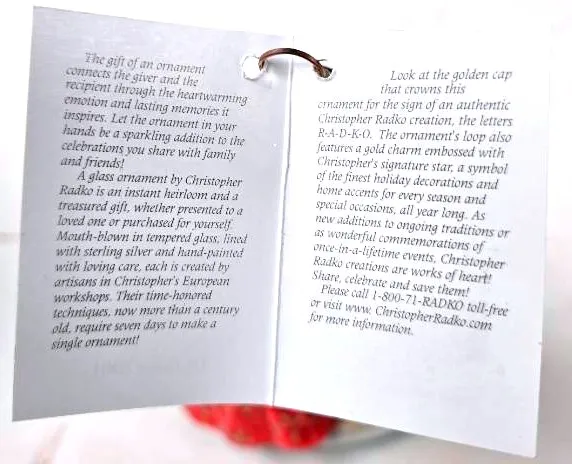 The gift of an ornament
connects the giver and the
recipient through the heartwarming
emotion and lasting memories it
inspires. Let the ornament in your
hands be a sparkling addition to the
celebrations you share with family
and friends!
A glass ornament by Christopher
Radko is an instant heirloom and a
treasured gift, whether presented to a
loved one or purchased for yourself.
Mouth-blown in tempered glass, lined
with sterling silver and hand-painted
with loving care, each is created by
artisans in Christopher's European
workshops. Their time-honored
techniques, now more than a century
old, require seven days to make a
single ornament!
Look at the golden cap
that crowns this
ornament for the sign of an authentic
Christopher Radko creation, the letters
R-A-D-K-O. The ornament's loop also
features a gold charm embossed with
Christopher's signature star, a symbol
of the finest holiday decorations and
home accents for every season and
special occasions, all year long. As
new additions to ongoing traditions or
as wonderful commemorations of
once-in-a-lifetime events, Christopher
Radko creations are works of heart!
Share, celebrate and save them!
Please call 1-800-71-RADKO toll-free
or visit www. ChristopherRadko.com
for more information.